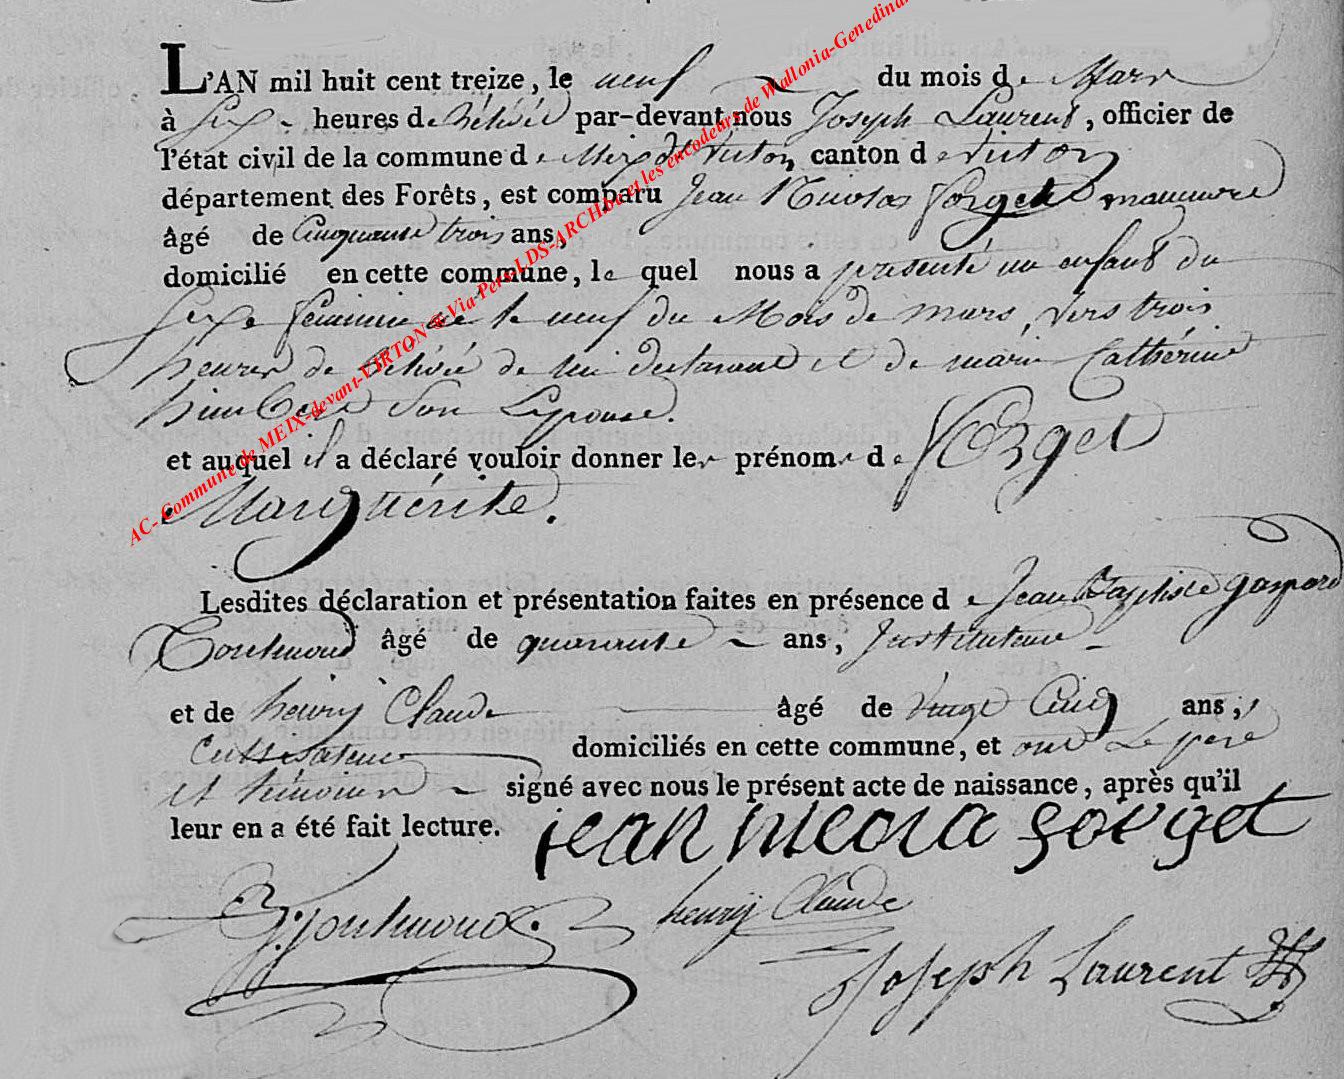 L'AN mil huit cent treize, le neuf du mois de Mars
à Six heures de Relevée par-devant nous Joseph Laurent, officier de
l'état civil de la commune de Meix dt Virton canton de Virton
département des Forêts, est comparu Jean Nicolas Forget manuvre
âgé de Cinquante trois ans,
domicilié en cette commune, le quel nous a presenté un enfant du
Sexe feminin né le neuf du Mois de mars, vers trois
heures de Relevée de lui declarant et de marie Cathérine
son Epouse.
et auquel il a déclaré vouloir donner les prénoms de Forget
Marguérite.
Lesdites déclaration et présentation faites en présence de Jean Baptiste gaspard
âgé de quarante ans, Instituteur
et de henry Claude âgé de vingt Cinq ans,
Cultivateur domiciliés en cette commune, et ont Le pere
et témoins signé avec nous le présent acte de naissance, après qu'il
leur en a été fait lecture. jean nicola forget
henry Claude
Joseph Laurent
AC- Commune de MEIX-devant-VIRTON & Via Pers-LDS-ARCH.be et les encodeurs de Wallonia-Genedinar